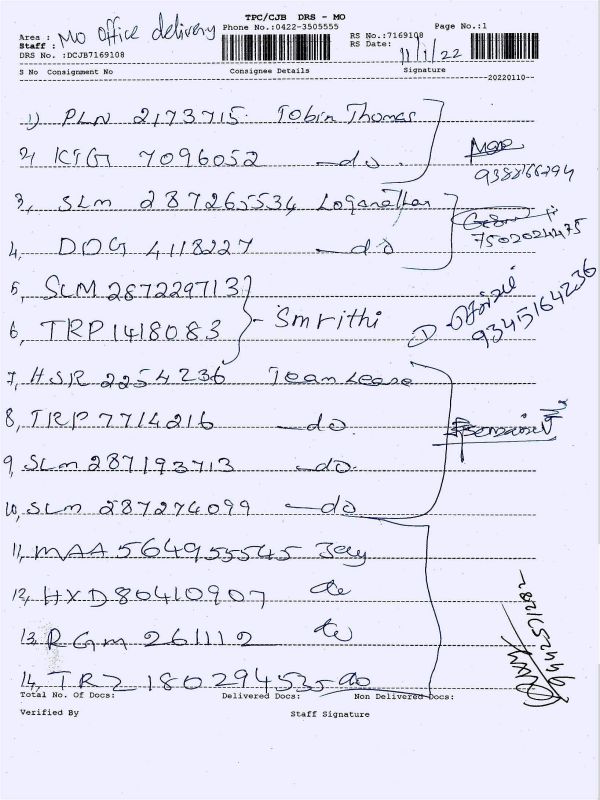 TPC/CJB DRS - MO
Area : MO office delivery Phone No.:0422-3505555 Page No.:1
Staff : RS No.:7169108
DRS No. :DCJB7169108 RS Date: 11/1/22
S No Consignment No Consignee Details Signature
20220110
1) PLN 2173715. Tobin Thomas
2, KTG 7096052 — do. 9388166794
3, SLM 287265534 Loganathan
4, DDG 4118227 — do 75020 24475
5, SLM 287229713
6, TRP 1418083 - Smrithi 9345164236
7, HSR 2254236 Team Lease
8, TRP 7714216 — do.
9, SLM 287193713 — do.
10, SLM 287274099 — do
11, MAA 564955545 Jay
12, HYD 80410907 do
13, RGM 261112 do
14, TRZ 180294535 do
Total No. Of Docs: Delivered Docs: Non Delivered Docs:
Verified By Staff Signature